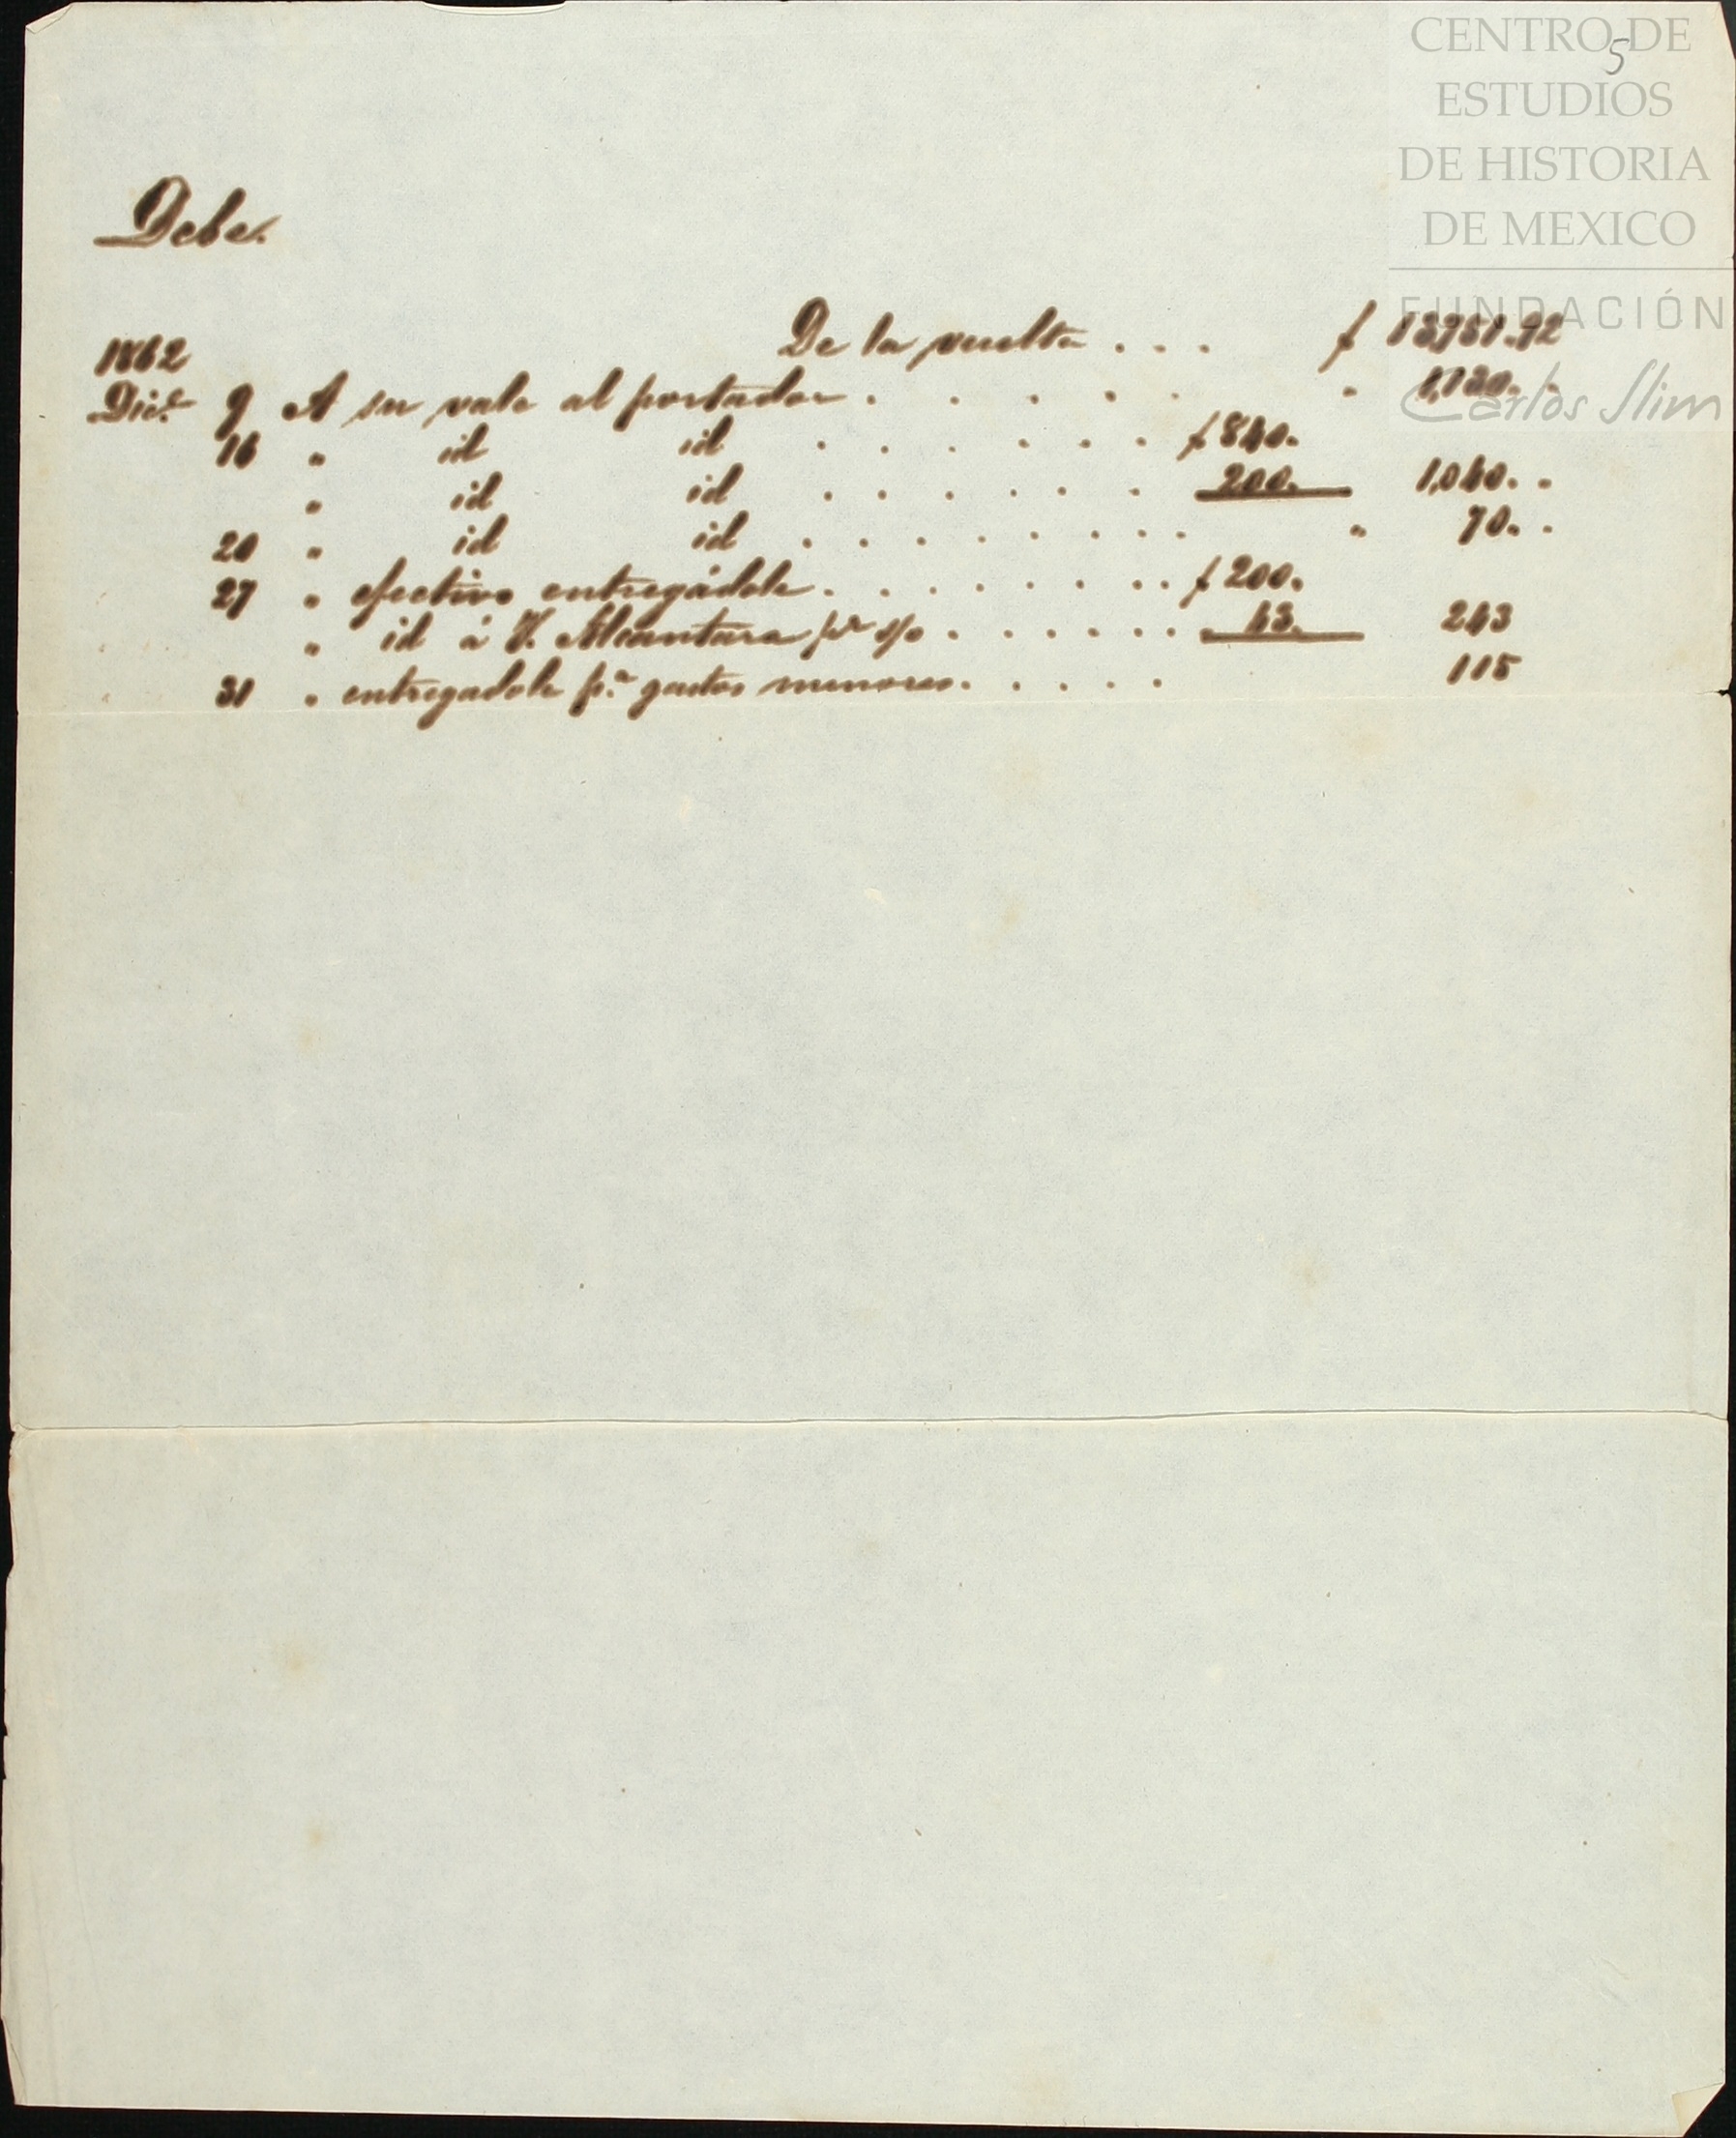 CENTRO DE
ESTUDIOS
DE HISTORIA
DE MEXICO
FUNDACIÓN
Carlos Slim
5
Debe.
De la vuelta . . . $ 13,751.92
1862
Dic.e 9 A su vale al portador . . . . . . " 1,130. "
16 " id id . . . . . . $ 840.
" id id . . . . . . 200. 1,040. "
20 " id id . . . . . . . . . " 70. "
27 " efectivo entregádole . . . . . . . . $ 200.
" id á V. Alcantara pr s/o . . . . . . 43. 243
31 " entregadole p.a gastos menores . . . . . 115